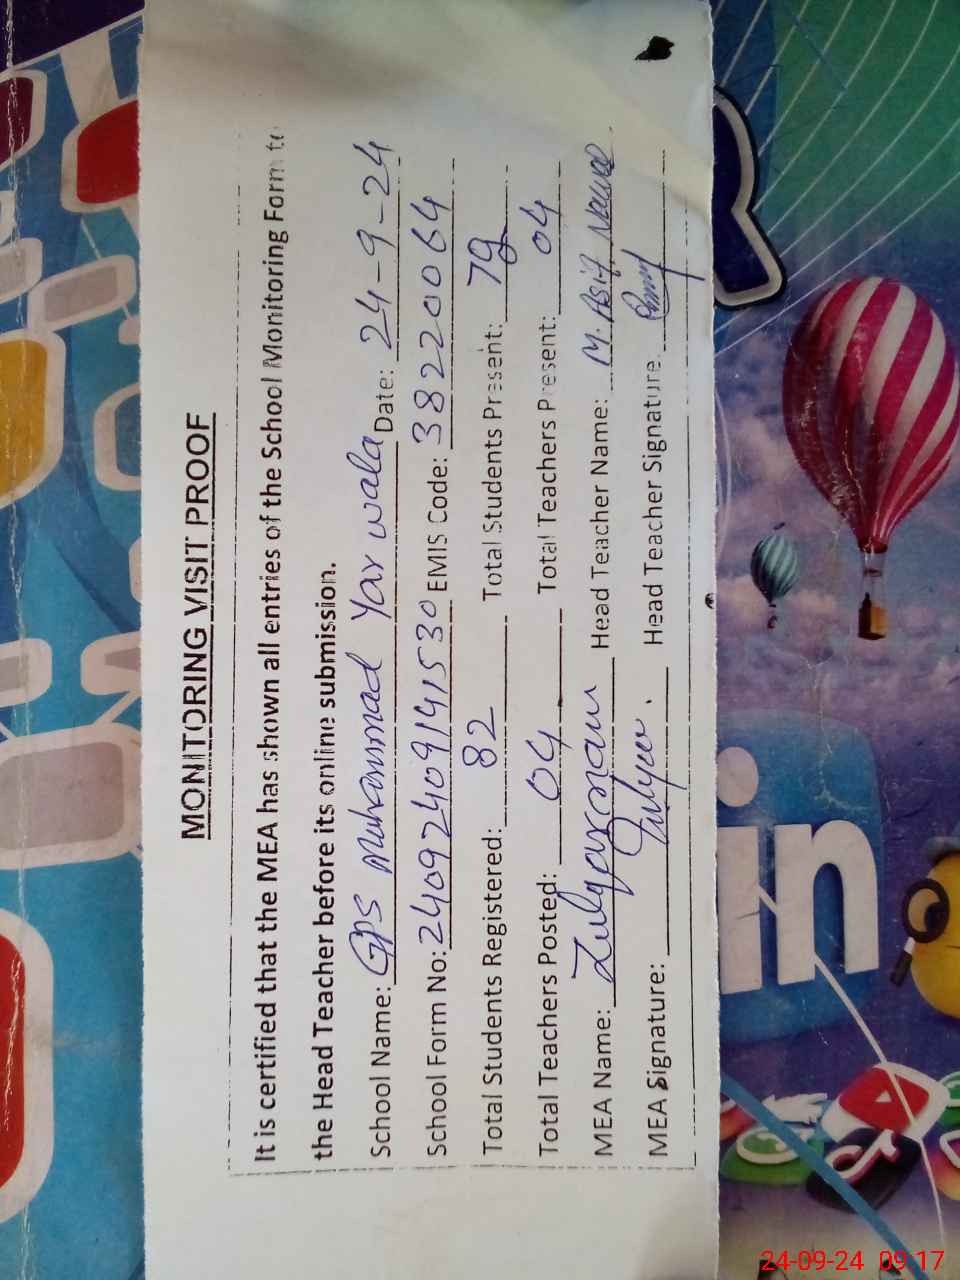 MONITORING VISIT PROOF
It is certified that the MEA has shown all entries of the School Monitoring Form to
the Head Teacher before its online submission.
School Name: GPS Muhammad Yar wala Date: 24-9-24
School Form No: 240924091941530 EMIS Code: 38220064
Total Students Registered: 82 Total Students Present: 79
Total Teachers Posted: 04 Total Teachers Present: 04
MEA Name: Zulqarnain Head Teacher Name: M. Asif Nawaz
MEA Signature: Head Teacher Signature.
in
24-09-24 09:17